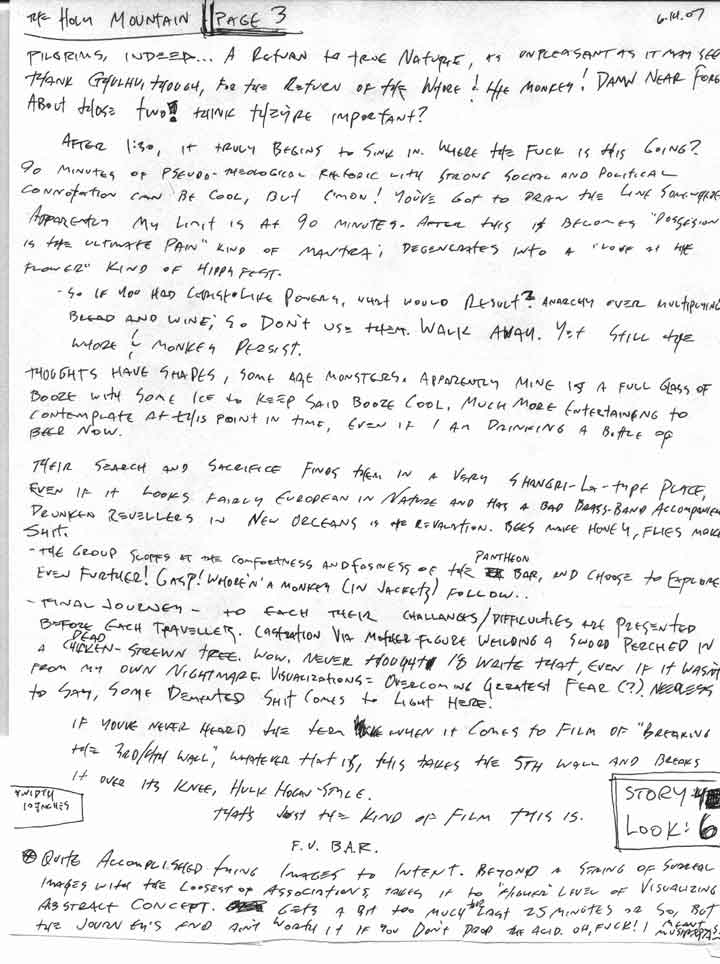 THE HOLY MOUNTAIN PAGE 3 6.14.07
PILGRIMS, INDEED... A RETURN TO TRUE NATURE, AS UNPLEASANT AS IT MAY SEE
THANK CTHULHU, THOUGH, FOR THE RETURN OF THE WHORE & THE MONKEY! DAMN NEAR FORG
ABOUT THOSE TWO! THINK THEY'RE IMPORTANT?
AFTER 1:30, IT TRULY BEGINS TO SINK IN. WHERE THE FUCK IS THIS GOING?
90 MINUTES OF PSEUDO-THEOLOGICAL RHETORIC WITH STRONG SOCIAL AND POLITICAL
CONNOTATION CAN BE COOL, BUT C'MON! YOU'VE GOT TO DRAW THE LINE SOMEWHERE
APPARENTLY MY LIMIT IS AT 90 MINUTES. AFTER THIS IT BECOMES "POSSESION
IS THE ULTIMATE PAIN" KIND OF MANTRA; DEGENERATES INTO A "LOOK AT THE
FLOWER" KIND OF HIPPY FEST.
- SO IF YOU HAD CHRIST-LIKE POWERS, WHAT WOULD RESULT? ANARCHY OVER MULTIPLYING
BREAD AND WINE; SO DON'T USE THEM. WALK AWAY. YET STILL THE
WHORE & MONKEY PERSIST.
THOUGHTS HAVE SHAPES, SOME ARE MONSTERS. APPARENTLY MINE IS A FULL GLASS OF
BOOZE WITH SOME ICE TO KEEP SAID BOOZE COOL. MUCH MORE ENTERTAINING TO
CONTEMPLATE AT THIS POINT IN TIME, EVEN IF I AM DRINKING A BOTTLE OF
BEER NOW.
THEIR SEARCH AND SACRIFICE FINDS THEM IN A VERY SHANGRI-LA-TYPE PLACE,
EVEN IF IT LOOKS FAIRLY EUROPEAN IN NATURE AND HAS A BAD BRASS-BAND ACCOMPANIEM
DRUNKEN REVELLERS IN NEW ORLEANS IS THE REVALATION. BEES MAKE HONEY, FLIES MAKE
SHIT.
- THE GROUP SCOFFS AT THE COMFORTNESS AND FOSNESS OF THE PANTHEON BAR, AND CHOOSE TO EXPLORE
EVEN FURTHER! GASP! WHORE'N'A MONKEY (IN JACKETS) FOLLOW..
- FINAL JOURNEY - TO EACH THEIR CHALLANGES/DIFFICULTIES ARE PRESENTED
BEFORE EACH TRAVELLER. CASTRATION VIA MOTHER-FIGURE WEILDING A SWORD PERCHED IN
A DEAD CHICKEN-STREWN TREE. WOW. NEVER THOUGHT I'D WRITE THAT, EVEN IF IT WASN'T
FROM MY OWN NIGHTMARE. VISUALIZATIONS = OVERCOMING GREATEST FEAR (?). NEEDLESS
TO SAY, SOME DEMENTED SHIT COMES TO LIGHT HERE!
IF YOU'VE NEVER HEARD THE TERM WHEN IT COMES TO FILM OF "BREAKING
THE 3RD/4TH WALL", WHATEVER THAT IS, THIS TAKES THE 5TH WALL AND BREAKS
IT OVER ITS KNEE, HULK HOGAN-STYLE.
THAT'S JUST THE KIND OF FILM THIS IS.
WIDTH
10 INCHES
STORY: 4
LOOK: 6
F.U. BAR.
* QUITE ACCOMPLISHED TYING IMAGES TO INTENT. BEYOND A STRING OF SURREAL
IMAGES WITH THE LOOSEST OF ASSOCIATIONS, TAKES IT TO "HIGHER" LEVEL OF VISUALIZING
ABSTRACT CONCEPT. GETS A BIT TOO MUCH THE LAST 25 MINUTES OR SO, BUT
THE JOURNEY'S END AIN'T WORTH IT IF YOU DON'T DROP THE ACID. OH, FUCK! I MEANT